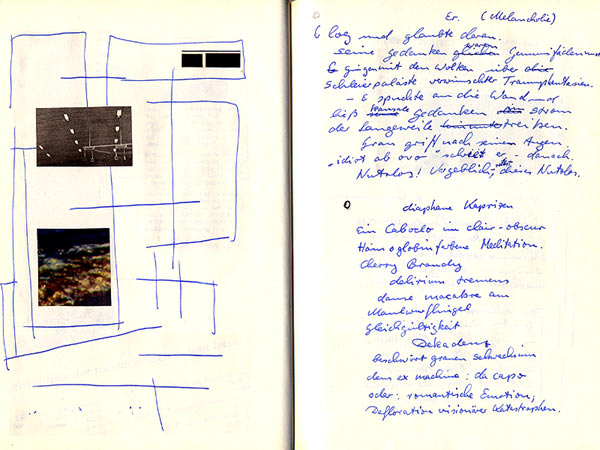 Er. (Melancholie)
log und glaubte daran.
seine gedanken waren
gingen mit den Wolken über die
Schleierpaläste verwünschter Traumphantasien.
– E spuckte an die Wand – or
ließ gedanken strom
der Langeweile treiben.
Grau griff nach seinen Augen.
– idiot ab ovo – schrie er – danach.
Nutzlos! Vergeblich dieses Nutzlos.
diaphane Kaprizen
Ein Caboclo im clair-obscur
Hämoglobinfarbene Meditation.
Cherry Brandy
delirium tremens
danse macabre am
Maulwurfhügel
Gleichgültigkeit
Dekadenz
beschwört grauen
deus ex machina: da capo
oder: romantische Emotion,
Defloration visionärer Katastrophen.